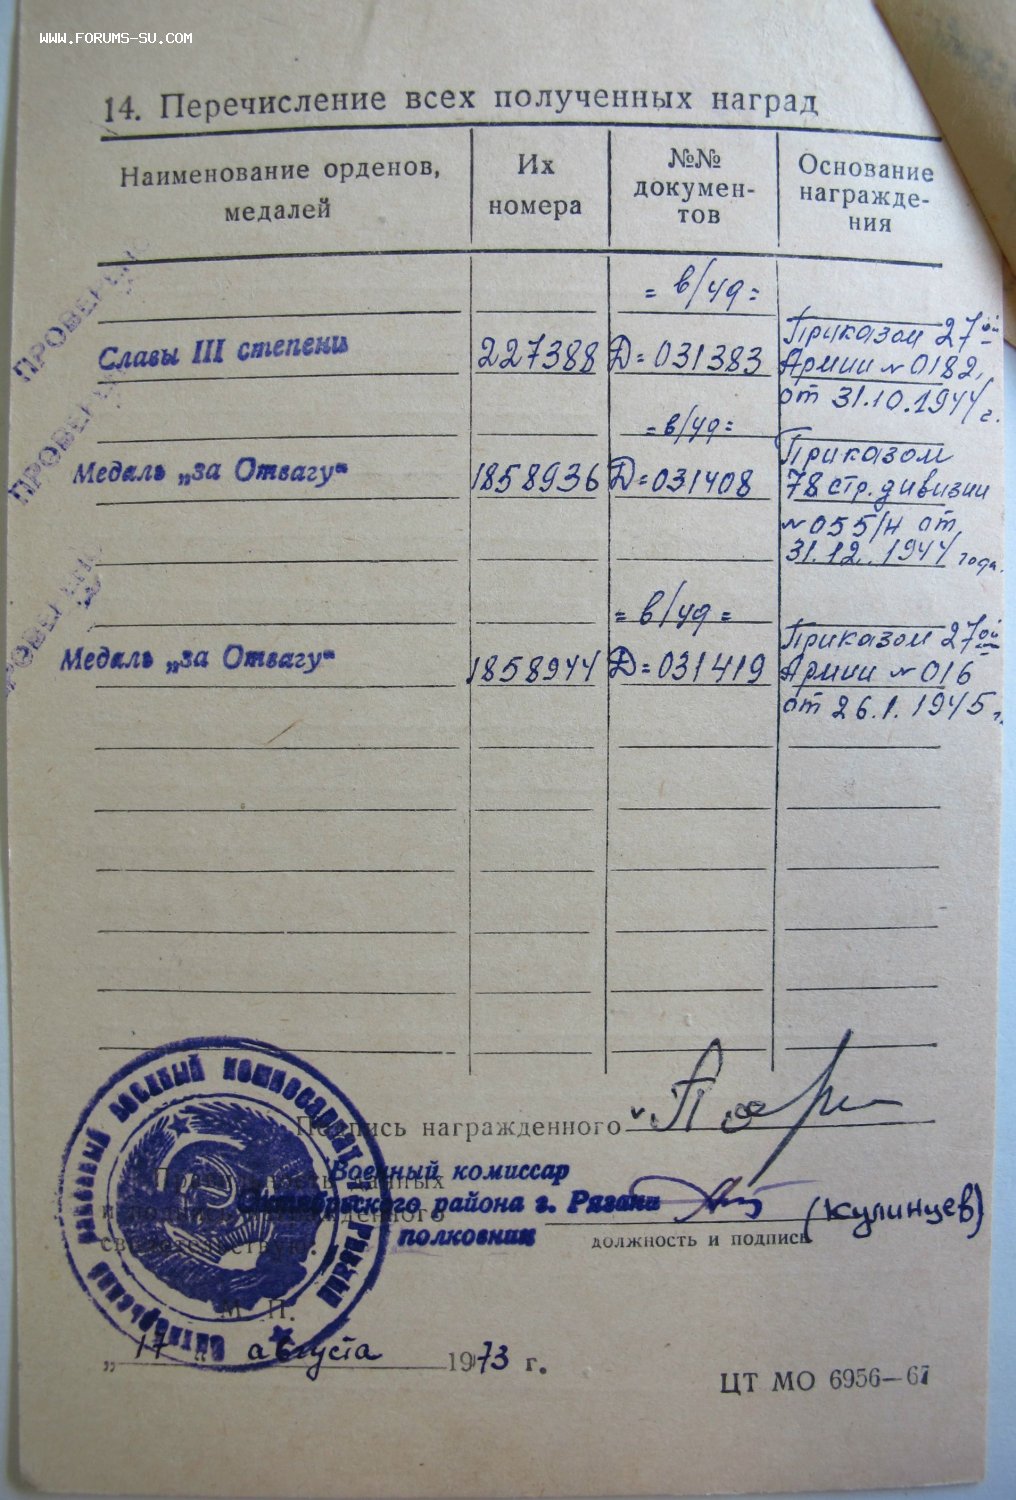 WWW.FORUMS-SU.COM
14. Перечисление всех полученных наград
Наименование орденов, медалей
Их номера
№№ докумен-тов
Основание награжде-ния
ПРОВЕРЕНО
= в/уд =
Славы III степени
227388
Д=031383
Приказом 27ой
Армии № 0182,
от 31.10.1944 г.
ПРОВЕРЕНО
= в/уд =
Медаль „за Отвагу"
1858936
Д=031408
Приказом
78 стр. дивизии
№ 055/н от
31.12.1944 года.
ПРОВЕРЕНО
= в/уд =
Медаль „за Отвагу"
1858944
Д=031419
Приказом 27ой
Армии № 016
от 26.1.1945 г.
Подпись награжденного
Правильность данных
и подпись награжденного
свидетельствую:
Военный комиссар
Октябрьского района г. Рязани
полковник
(Кулинцев)
должность и подпись
М. П.
Октябрьский районный военный комиссариат г. Рязани
„ 17 " августа 1973 г.
ЦТ МО 6956—67